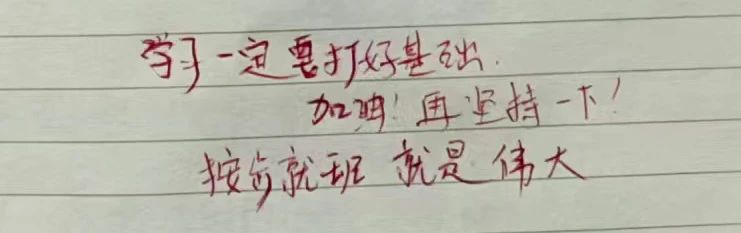 学习一定要打好基础.
加油！再坚持一下！
按步就班 就是 伟大